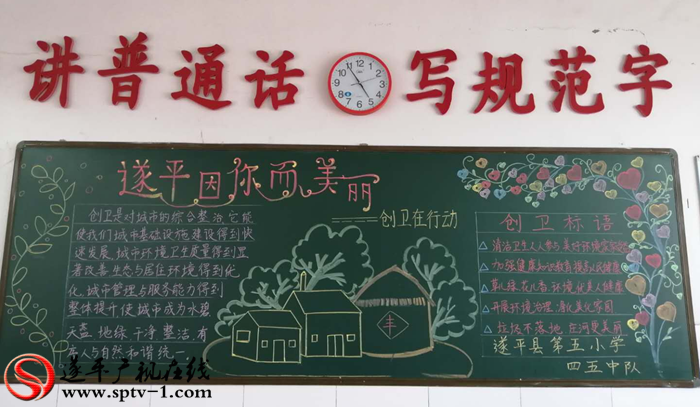 讲普通话
写规范字
遂平因你而美丽
——创卫在行动
创卫是对城市的综合整治,它能
使我们城市基础设施建设得到快
速发展,城市环境卫生质量得到显
著改善,生态与居住环境得到优
化,城市管理与服务能力得到
整体提升,使城市成为水碧
天蓝、地绿、干净、整洁、有
序、人与自然和谐统一
创卫标语
清洁卫生人人参与 美好环境
加强健康知识教育
草儿绿 花儿香 环境优美人健康
开展环境治理 净化美化家园
垃圾不落地 在河更美丽
遂平县第五小学
四五中队
丰
遂平广视在线
www.sptv-1.com